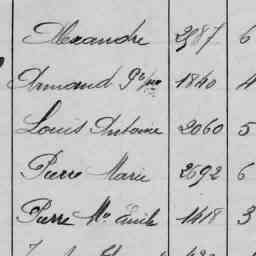 Alexandre 2587 6
Armand Pe 1840 4
Louis Antoine 2060 5
Pierre Marie 2692 6
Pierre Me Emile 1418 3